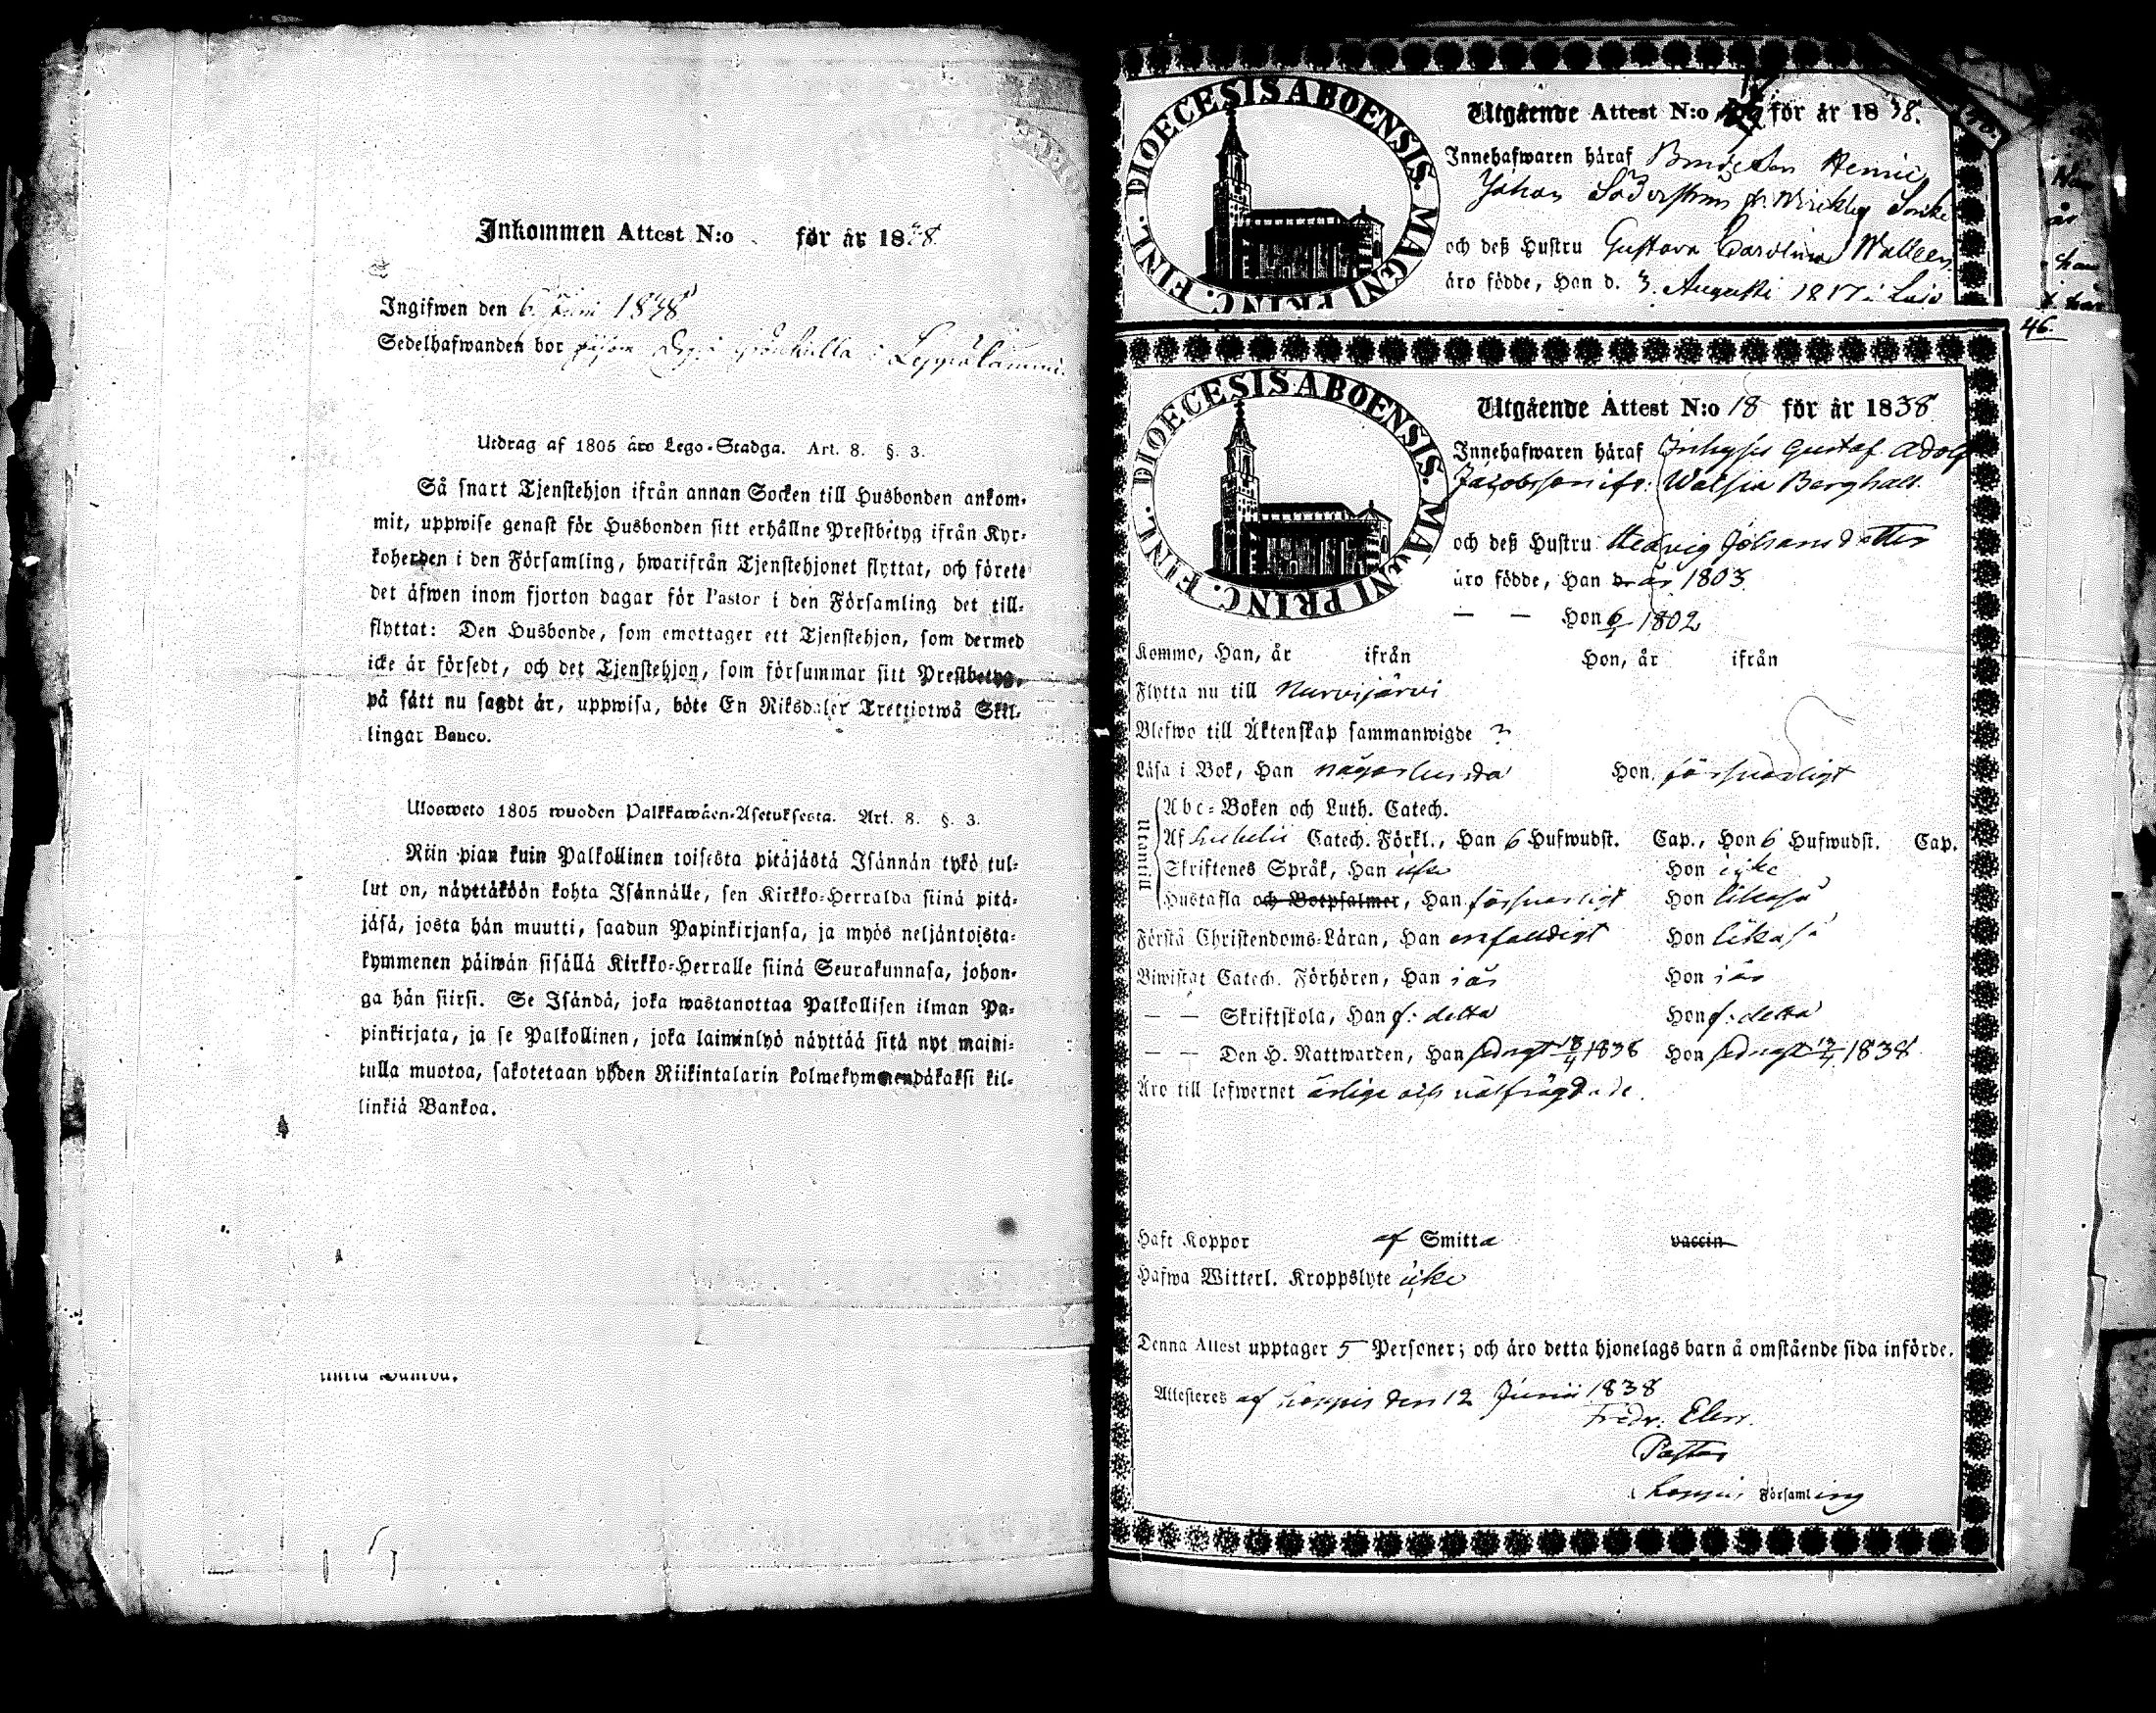 Inkommen Attest N:o för år 1838
Ingifwen den 6 Juni 1838
Sedelhafwanden bor
Utdrag af 1805 års Lego-Stadga. Art. 8. §. 3.
Så snart Tjenstehjon ifrån annan Socken till Husbonden ankom-
mit, uppwise genast för Husbonden sitt erhållne Prestbetyg ifrån Kyr-
koherden i den Församling, hwarifrån Tjenstehjonet flyttat, och förete
det äfwen inom fjorton dagar för Pastor i den Församling det till-
flyttat: Den Husbonde, som emottager ett Tjenstehjon, som dermed
icke är försedt, och det Tjenstehjon, som försummar sitt Prestbetyg,
på sätt nu sagdt är, uppwisa, böte En Riksdaler Trettiotwå Skil-
lingar Banco.
Ulosweto 1805 wuoden Palkkawäen-Asetuksesta. Art. 8. §. 3.
Niin pian kuin Palkollinen toisesta pitäjästä Isännän tykö tul-
lut on, näyttäköön kohta Isännälle, sen Kirkko-Herralda siinä pitä-
jäsä, josta hän muutti, saadun Papinkirjansa, ja myös neljäntoista-
kymmenen päiwän sisällä Kirkko-Herralle siinä Seurakunnasa, johon-
ga hän siirsi. Se Isändä, joka wastanottaa Palkollisen ilman Pa-
pinkirjata, ja se Palkollinen, joka laiminlyö näyttää sitä nyt maini-
tulla muotoa, sakotetaan yhden Riikintalarin kolmekymmendäkaksi kil-
linkiä Bankoa.
DIOECESIS ABOENSIS. MAGNI PRINC. FINL.
Utgående Attest N:o för år 1838.
Innehafwaren häraf
Johan Söderström
och deß Hustru Gustava Carolina Walleen
äro födde, Han d. 3. Augusti 1817 i
46.
DIOECESIS ABOENSIS. MAGNI PRINC. FINL.
Utgående Attest N:o 18 för år 1838
Innehafwaren häraf Inhyses Gustaf Adolf
Jacobsson ifr: Berghall.
och deß Hustru Hedvig Johansdotter
äro födde, Han d. år 1803.
— — Hon 1802
Kommo, Han, år ifrån Hon, år ifrån
Flytta nu till Nurmijärvi
Blefwo till Äktenskap sammanwigde ?
Läsa i Bok, Han någorlunda Hon försvarligt
Utantill
Abc-Boken och Luth. Catech.
Af Catech. Förkl., Han 6 Hufwudst. Cap., Hon 6 Hufwudst. Cap.
Skriftenes Språk, Han icke Hon icke
Hustafla och Botpsalmer, Han försvarligt Hon likaså
Förstå Christendoms-Läran, Han enfalldigt Hon likaså
Biwistat Catech. Förhören, Han i år Hon i år
— — Skriftskola, Han f: detta Hon f: detta
— — Den H. Nattwarden, Han sednast 1838 Hon sednast 1838
Äro till lefwernet ärlige och välfrägdade.
Haft Koppor af Smitta vaccin
Hafwa Witterl. Kroppslyte icke
Denna Attest upptager 5 Personer; och äro detta hjonelags barn å omstående sida införde.
Attesteres af Loppis den 12 Junii 1838
Fredr. Elen.
Pastor
i Loppis Församling